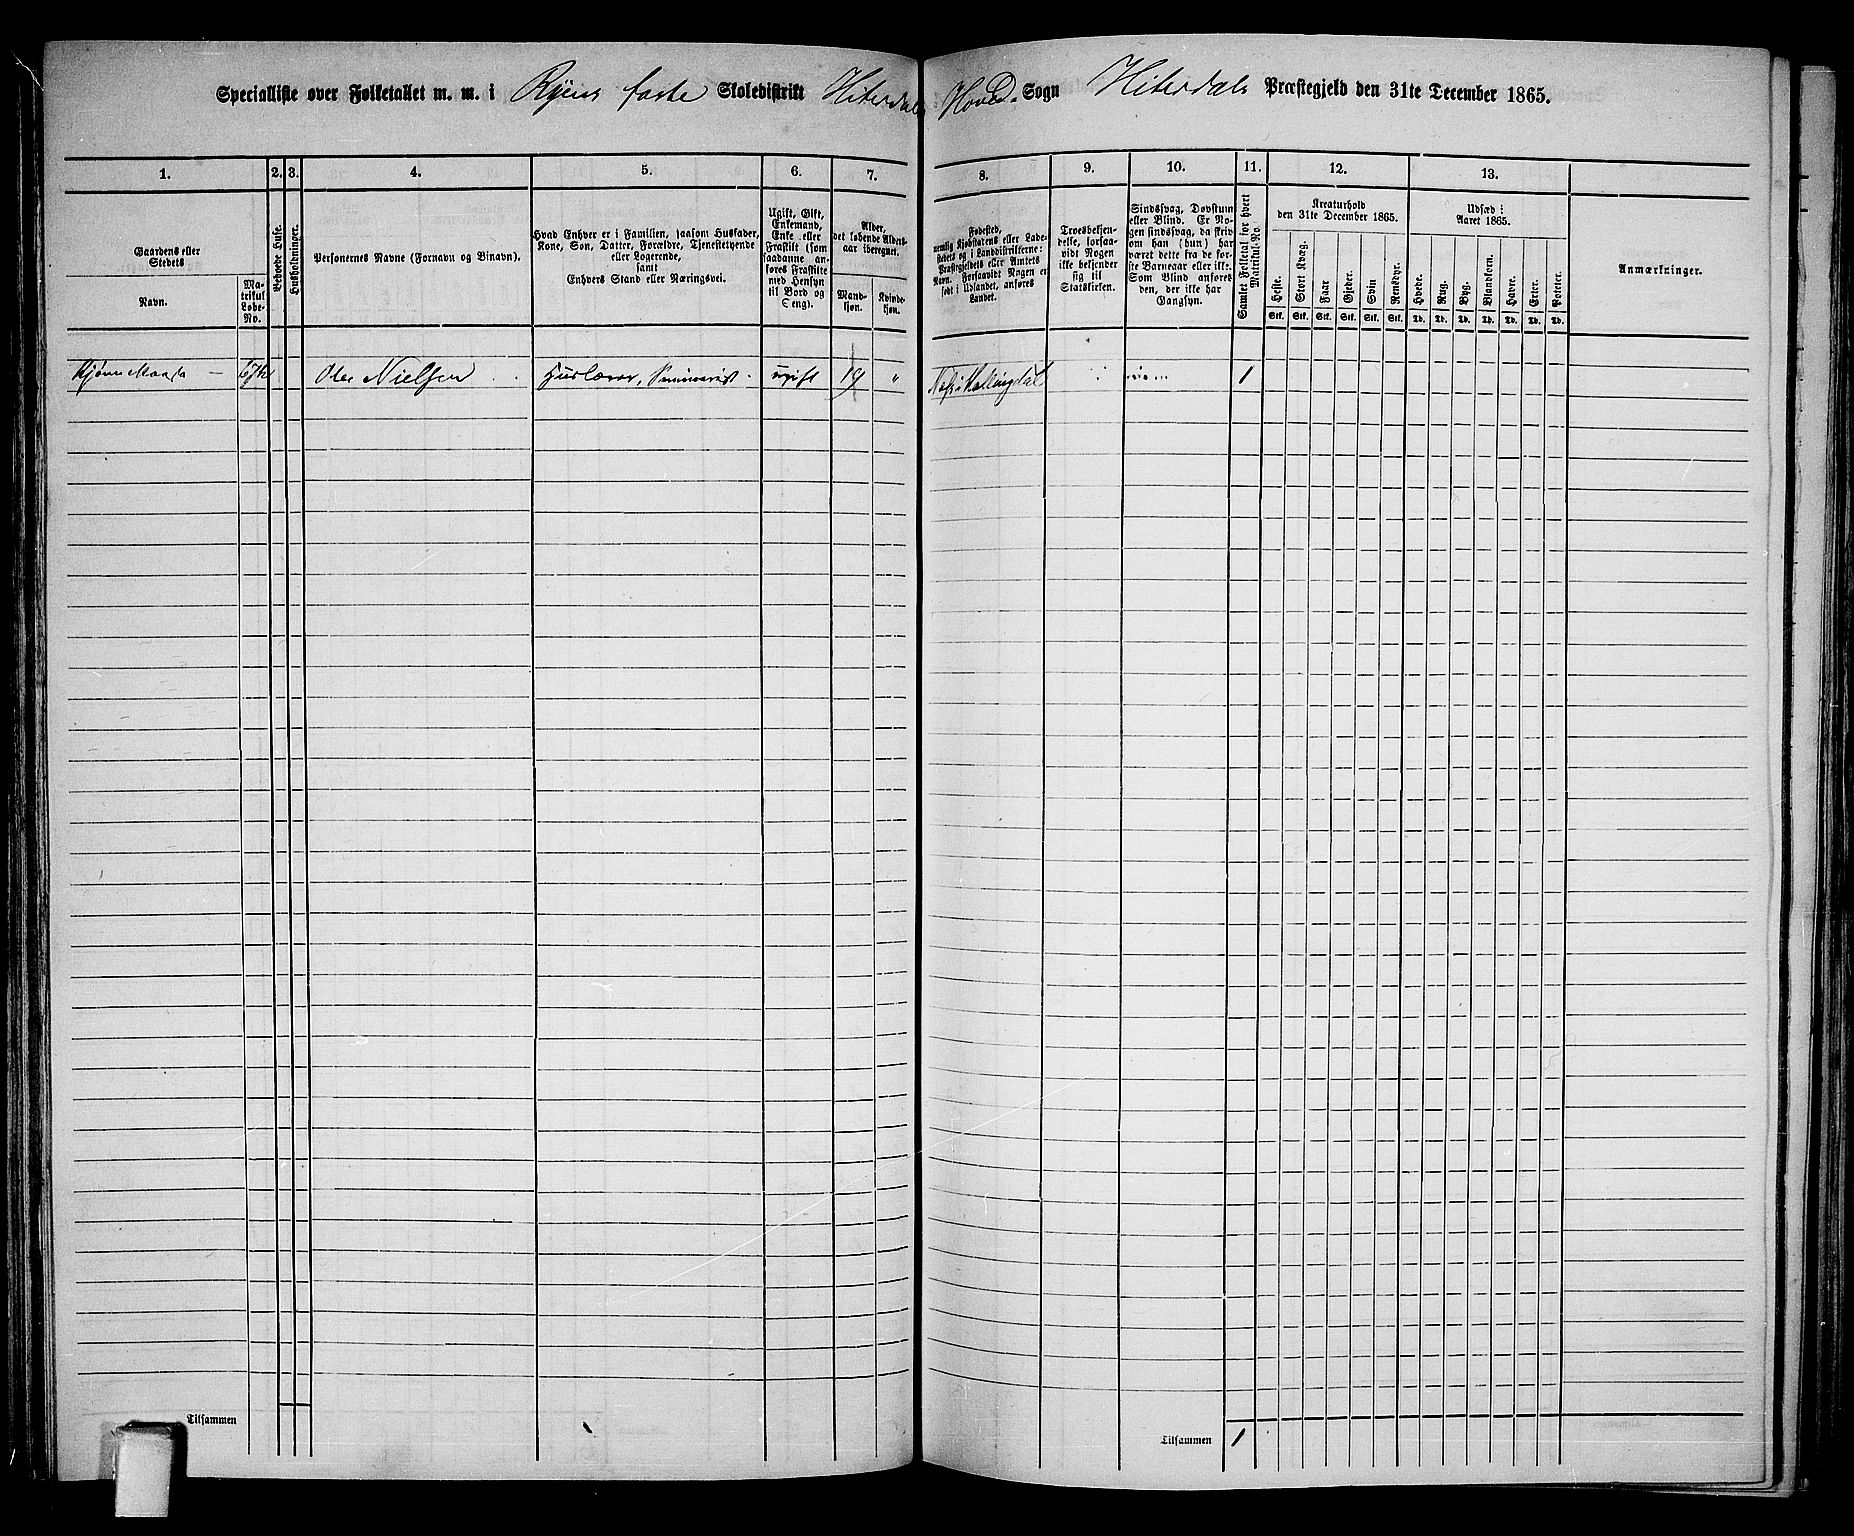 Specialliste over Folketallet m. m. i Ryens faste Skoledistrikt Hiterdals Hoved-Sogn Hiterdals Præstegjeld den 31te December 1865.
1. 2. 3. 4. 5. 6. 7. 8. 9. 10. 11. 12. 13.
Gaardens eller
Stedets
Navn.
Ma-
trikul
Løbe-
No.
Beboede Huse.
Husholdninger.
Personernes Navne (Fornavn og Binavn).
Hvad Enhver er i Familien, saasom Husfader,
Kone, Søn, Datter, Forældre, Tjenestetyende
eller Logerende,
samt
Enhvers Stand eller Næringsvei.
Ugift, Gift,
Enkemand,
Enke eller
Fraskilt (som
saadanne an-
føres Fraskilte
med Hensyn
til Bord og
Seng).
Alder,
det løbende Alders-
aar iberegnet.
Mand-
kjøn.
Kvinde-
kjøn.
Fødested,
nemlig Kjøbstadens eller Lade-
stedets og i Landdistrikterne:
Præstegjeldets eller Amtets
Navn. Forsaavidt Nogen er
født i Udlandet, anføres
Landet.
Troesbekjen-
delse, forsaa-
vidt Nogen
ikke bekjender
sig til
Statskirken.
Sindssvag, Døvstum
eller Blind. Er No-
gen sindssvag, da skriv
om han (hun) har
været dette fra de før-
ste Barneaar eller ikke.
Som Blind anføres
den, der ikke har
Gangsyn.
Samlet Folketal for hvert
Matrikul-No.
Kreaturhold
den 31te December 1865.
Heste. Stort Kvæg. Faar Gjeder. Svin Rensdyr.
Stk. Stk. Stk. Stk. Stk. Stk.
Udsæd i
Aaret 1865.
Hvede. Rug. Byg. Blandkorn. Havre. Erter. Poteter.
Td. Td. Td. Td. Td. Td. Td.
Anmærkninger.
Ole Nielsen Huslærer, Seminarist. ugift 19 " 1
Tilsammen
Tilsammen 1